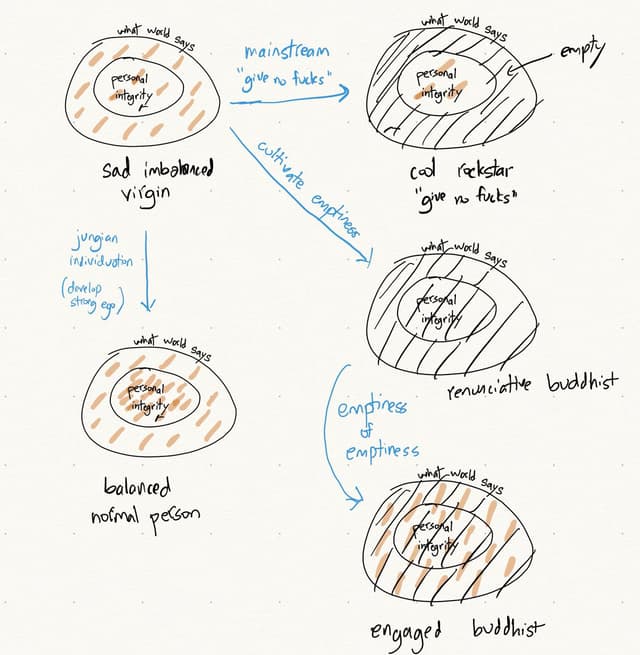 what world says
personal
integrity
sad imbalanced
virgin
mainstream
"give no fucks"
what world says
personal
integrity
empty
cool rockstar
"give no fucks"
cultivate emptiness
jungian
individuation
(develop
strong ego)
what world says
personal
integrity
balanced
normal person
what world says
personal
integrity
renunciative buddhist
emptiness
of
emptiness
what world says
personal
integrity
engaged buddhist